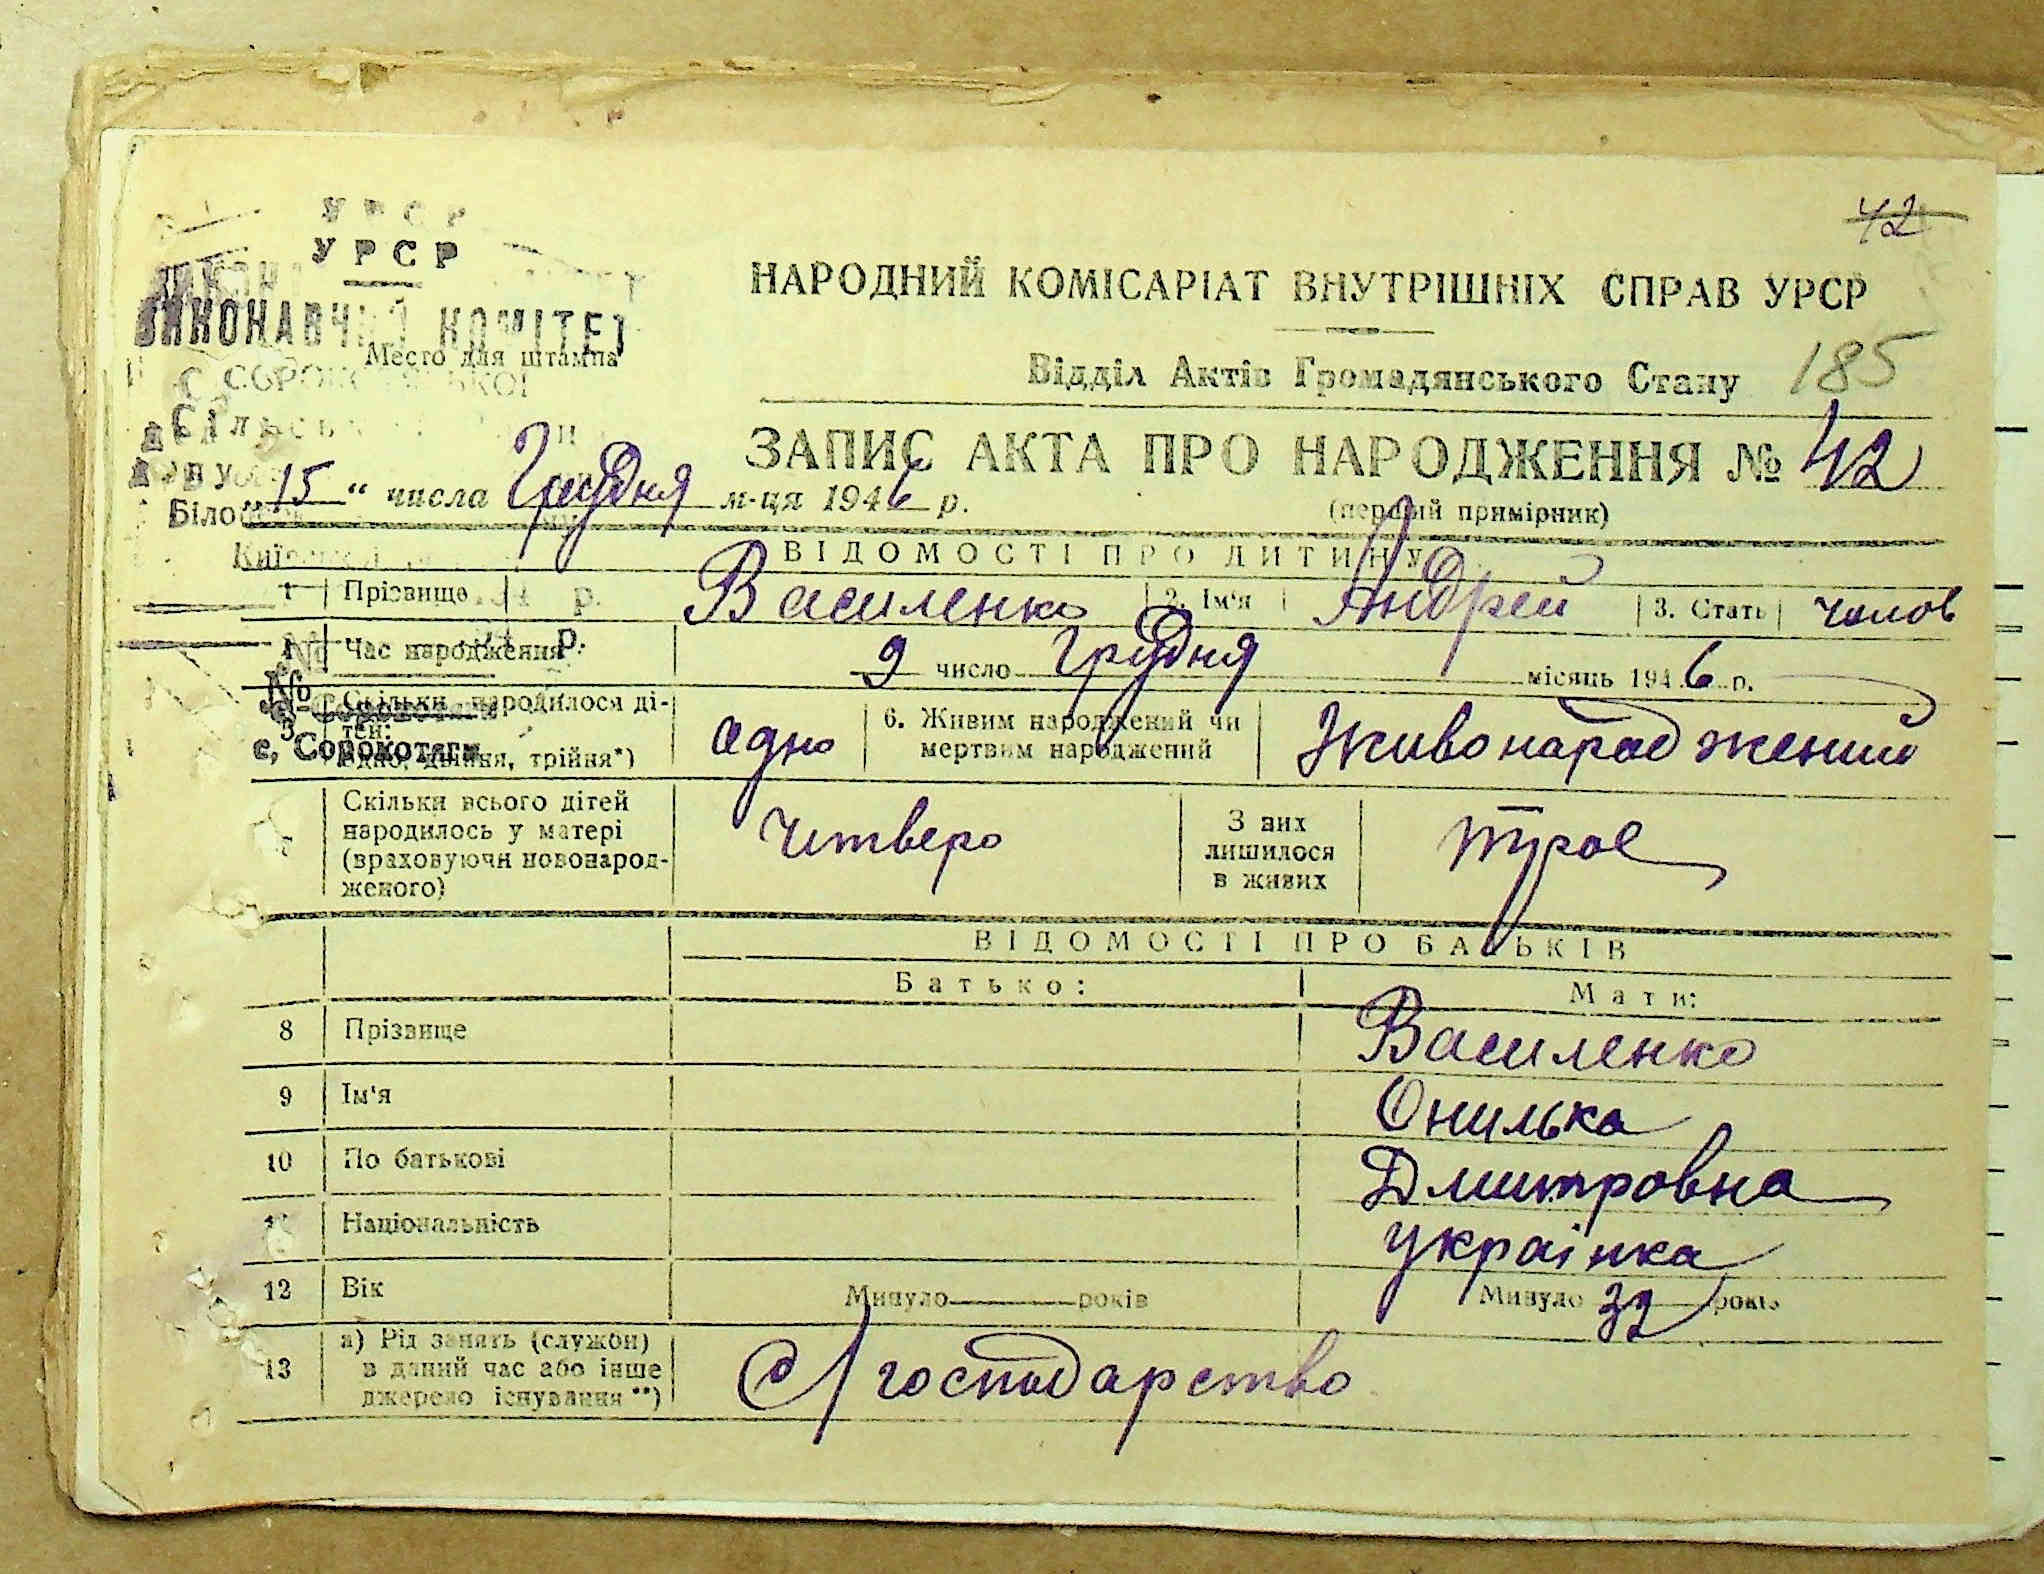 42
УРСР
УРСР
ВИКОНАВЧИЙ КОМІТЕТ
Место для штампа
НАРОДНИЙ КОМІСАРІАТ ВНУТРІШНІХ СПРАВ УРСР
Відділ Актів Громадянського Стану 185
ЗАПИС АКТА ПРО НАРОДЖЕННЯ № 42
(перший примірник)
"15" числа Грудня м-ця 1946 р.
ВІДОМОСТІ ПРО ДИТИНУ
1 Прізвище Василенко 2. Ім'я Андрей 3. Стать чолов
Час народження 9 число Грудня місяць 1946 р.
№
с. Сорокотяги
Скільки народилося дітей: одно, двійня, трійня*) одно 6. Живим народжений чи мертвим народжений Живонароджений
Скільки всього дітей народилось у матері (враховуючи новонародженого) Четверо З них лишилося в живих троє
ВІДОМОСТІ ПРО БАТЬКІВ
Батько: Мати:
8 Прізвище Василенко
9 Ім'я Онилька
10 По батькові Дмитровна
Національність українка
12 Вік Минуло років Минуло 32 років
13 а) Рід занять (служби) в даний час або інше джерело існування **) с/господарство